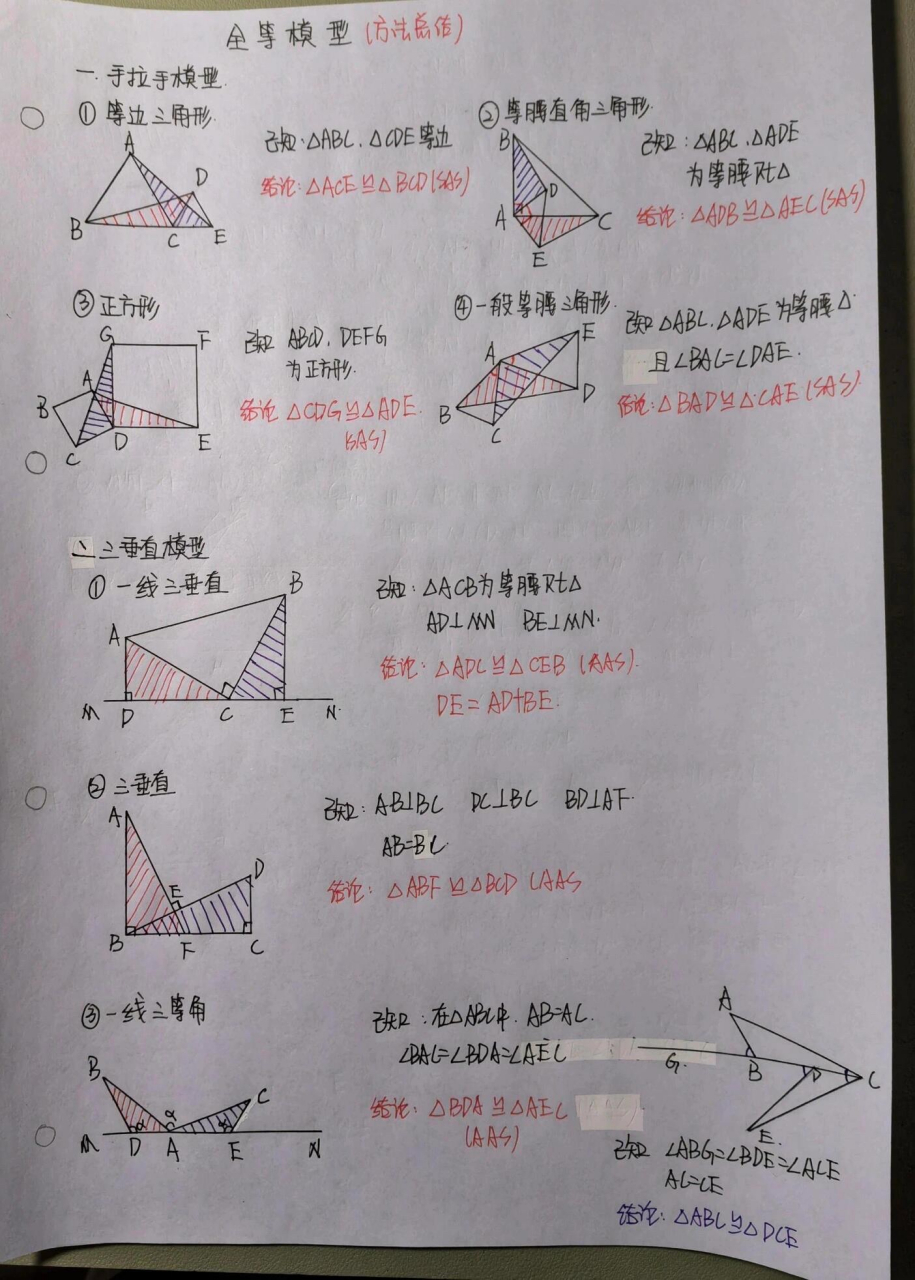 全等模型(方法总结)
一.手拉手模型.
①等边三角形.
A
B
C
D
E
已知:△ABC.△CDE等边
结论:△ACE≌△BCD(SAS)
②等腰直角三角形.
B
D
A
C
E
已知:△ABC.△ADE
为等腰Rt△
结论:△ADB≌△AEC(SAS)
③正方形
G
F
A
B
C
D
E
已知 ABCD.DEFG
为正方形.
结论 △CDG≌△ADE.
(SAS)
④一般等腰三角形.
E
A
D
B
C
已知△ABC.△ADE为等腰△.
且∠BAC=∠DAE.
结论:△BAD≌△CAE(SAS).
二三垂直模型
①一线三垂直
B
A
M D C E N.
已知:△ACB为等腰Rt△
AD⊥MN BE⊥MN.
结论:△ADC≌△CEB(AAS).
DE=AD+BE.
②三垂直
A
D
E
B F C
已知:AB⊥BC DC⊥BC BD⊥AF.
AB=BC.
结论:△ABF≌△BCD(AAS
③一线三等角
B
C
α
α
α
M D A E N
已知:在△ABC中.AB=AC.
∠BAC=∠BDA=∠AEC
结论:△BDA≌△AEC
(AAS)
A
G.
B
D
C
E.
已知 ∠ABG=∠BDE=∠ACE
AC=CE
结论:△ABC≌△DCE